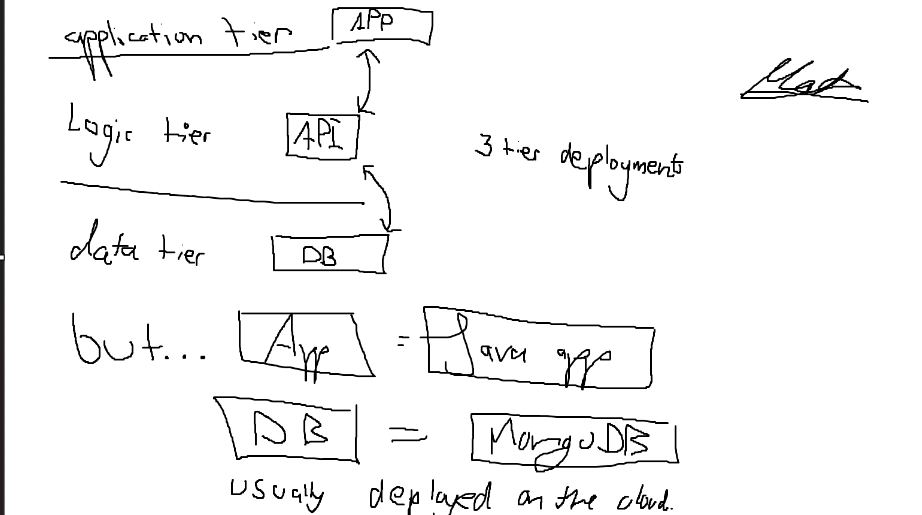 application tier APP
Mat
Logic tier API
3 tier deployments
data tier DB
but... App = Java app
DB = MongoDB
usually deployed on the cloud.